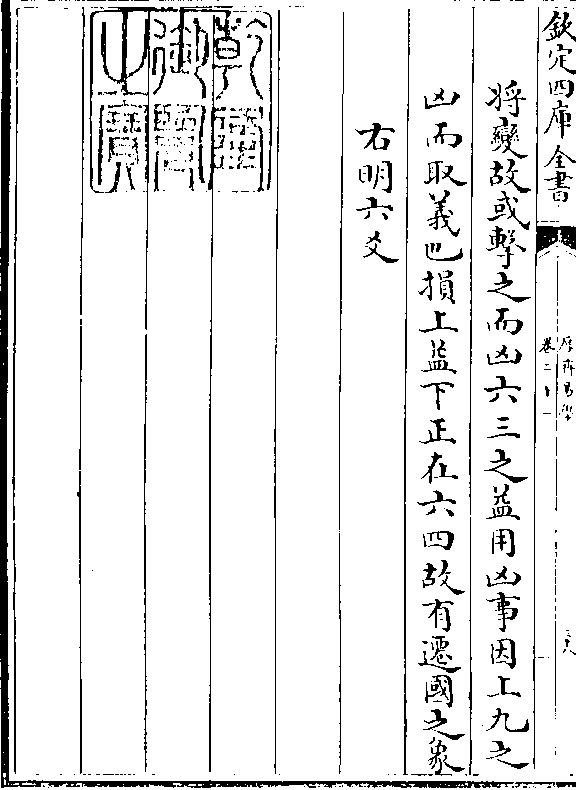 欽定四庫全書
厚齋易學
卷二十一
將變故或擊之而凶六三之益用凶事因上九之
凶而取義也損上益下正在六四故有遷國之象
右明六爻
乾隆
御覽
之寶